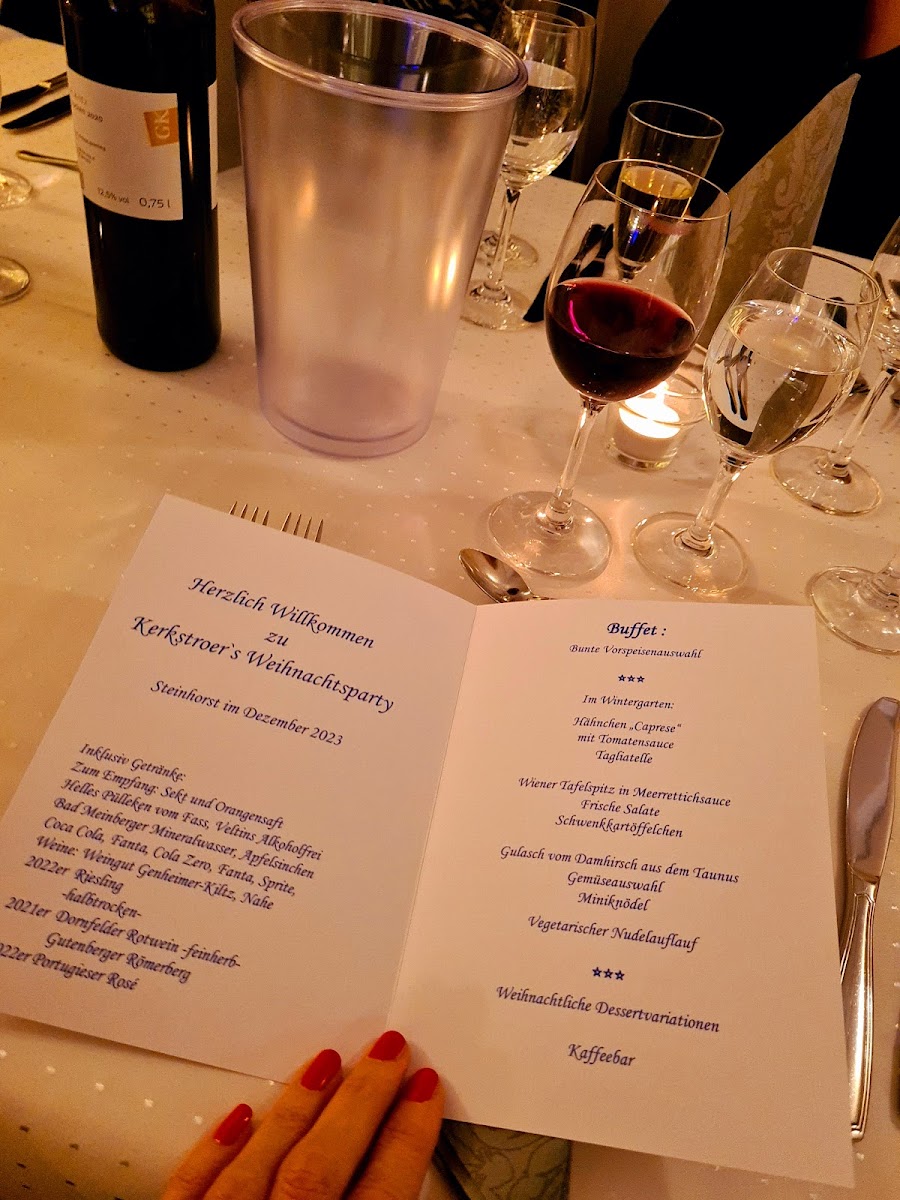 2020
GK
12,5% vol 0,75 l
Herzlich Willkommen
zu
Kerkstroer`s Weihnachtsparty
Steinhorst im Dezember 2023
Inklusiv Getränke:
Zum Empfang: Sekt und Orangensaft
Helles Pülleken vom Fass, Veltins Alkoholfrei
Bad Meinberger Mineralwasser, Apfelsinchen
Coca Cola, Fanta, Cola Zero, Fanta, Sprite,
Weine: Weingut Genheimer-Kiltz, Nahe
2022er Riesling
-halbtrocken-
2021er Dornfelder Rotwein -feinherb-
Gutenberger Römerberg
022er Portugieser Rosé
Buffet :
Bunte Vorspeisenauswahl
***
Im Wintergarten:
Hähnchen „Caprese“
mit Tomatensauce
Tagliatelle
Wiener Tafelspitz in Meerrettichsauce
Frische Salate
Schwenkkartöffelchen
Gulasch vom Damhirsch aus dem Taunus
Gemüseauswahl
Miniknödel
Vegetarischer Nudelauflauf
***
Weihnachtliche Dessertvariationen
Kaffeebar